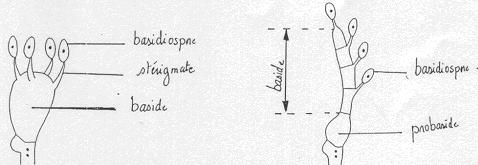 basidiospne
stérigmate
baside
baside
basidiospne
probaside